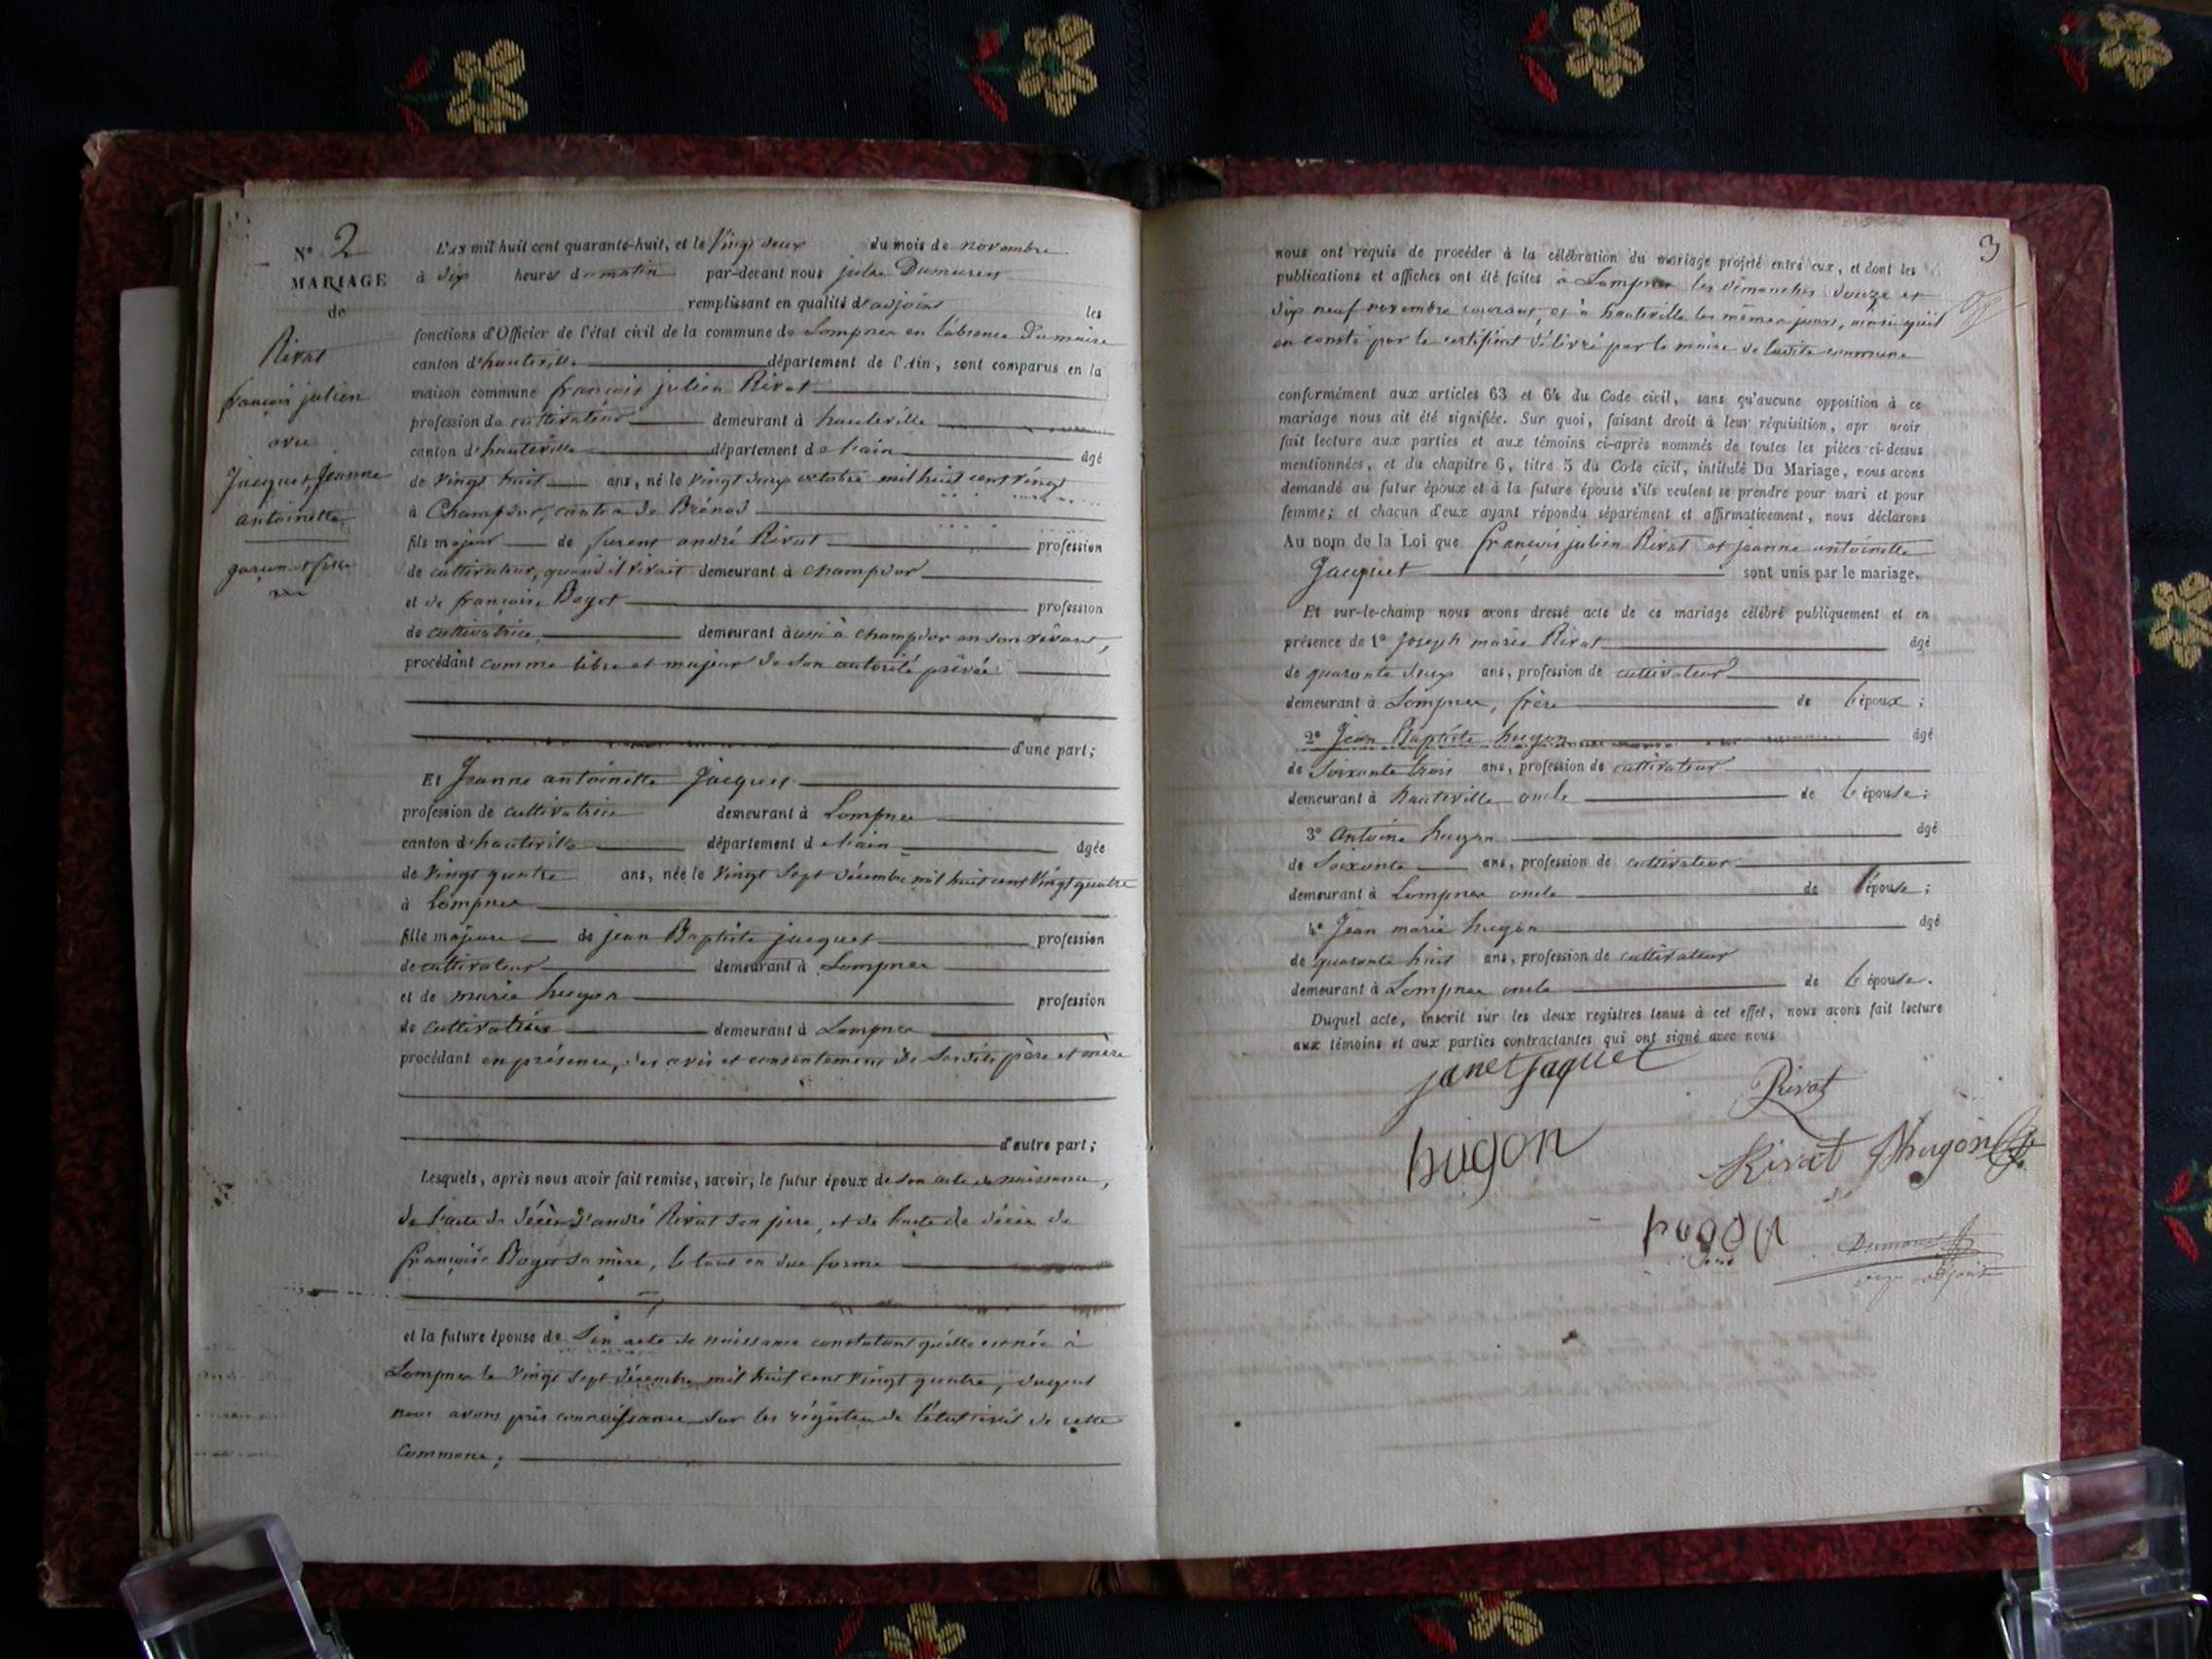 N° 2
MARIAGE
de
Rivat
françois julien
avec
Jacquet, Jeanne
antoinette
garçon et fille
L'AN mil huit cent quarante-huit, et le Vingt deux du mois de novembre
à dix heures du matin par-devant nous
remplissant en qualité d'adjoint les
fonctions d'Officier de l'état civil de la commune de Lompnes en l'absence du maire
canton d'hauteville département de l'Ain, sont comparus en la
maison commune françois julien Rivat
profession de cultivateur demeurant à hauteville
canton d'hauteville département de l'ain âgé
de Vingt huit ans, né le Vingt deux octobre mil huit cent Vingt
à Champdor, canton de Brénod
fils majeur de furent andré Rivat profession
de cultivateur, quand il vivait demeurant à champdor
et de françoise Boget profession
de cultivatrice, demeurant aussi à champdor en son vivant,
procédant comme libre et majeur de son autorité privée
d'une part;
Et Jeanne antoinette Jacquet
profession de cultivatrice demeurant à Lompnes
canton d'hauteville département de l'ain âgée
de Vingt quatre ans, née le Vingt Sept décembre mil huit cent Vingt quatre
à Lompnes
fille majeure de jean Baptiste jacquet profession
de cultivateur demeurant à Lompnes
et de marie hugon profession
de cultivatrice demeurant à Lompnes
procédant en présence, des avis et consentement de Sesdits père et mère
d'autre part;
Lesquels, après nous avoir fait remise, savoir, le futur époux de son acte de naissance,
de l'acte de décès d'andré Rivat son père, et de l'acte de décès de
françoise Boget sa mère, le tout en due forme
et la future épouse de Son acte de naissance constatant qu'elle est née à
Lompnes le Vingt Sept décembre mil huit cent Vingt quatre, duquel
nous avons pris connaissance sur les régistres de l'état civil de cette
commune;
3
nous ont requis de procéder à la célébration du mariage projeté entre eux, et dont les
publications et affiches ont été faites à Lompnes les dimanches douze et
dix neuf novembre courant, et à hauteville les mêmes jours, ainsi qu'il
en conste par le certificat délivré par le maire de ladite commune
conformément aux articles 63 et 64 du Code civil, sans qu'aucune opposition à ce
mariage nous ait été signifiée. Sur quoi, faisant droit à leur réquisition, apr avoir
fait lecture aux parties et aux témoins ci-après nommés de toutes les pièces ci-dessus
mentionnées, et du chapitre 6, titre 5 du Code civil, intitulé Du Mariage, nous avons
demandé au futur époux et à la future épouse s'ils veulent se prendre pour mari et pour
femme; et chacun d'eux ayant répondu séparément et affirmativement, nous déclarons
Au nom de la Loi que françois julien Rivat et jeanne antoinette
Jacquet sont unis par le mariage.
Et sur-le-champ nous avons dressé acte de ce mariage célébré publiquement et en
présence de 1° Joseph marie Rivat âgé
de quarante deux ans, profession de cultivateur
demeurant à Lompnes, frère de l'époux;
2° Jean Baptiste hugon âgé
de Soixante trois ans, profession de cultivateur
demeurant à hauteville oncle de l'épouse;
3° Antoine hugon âgé
de Soixante ans, profession de cultivateur
demeurant à Lompnes oncle de l'épouse;
4° Jean marie hugon âgé
de quarante huit ans, profession de cultivateur
demeurant à Lompnes oncle de l'épouse.
Duquel acte, inscrit sur les deux registres tenus à cet effet, nous avons fait lecture
aux témoins et aux parties contractantes qui ont signé avec nous
janet jaquet
Rivat
hugon
Rivat
hugon
hugon